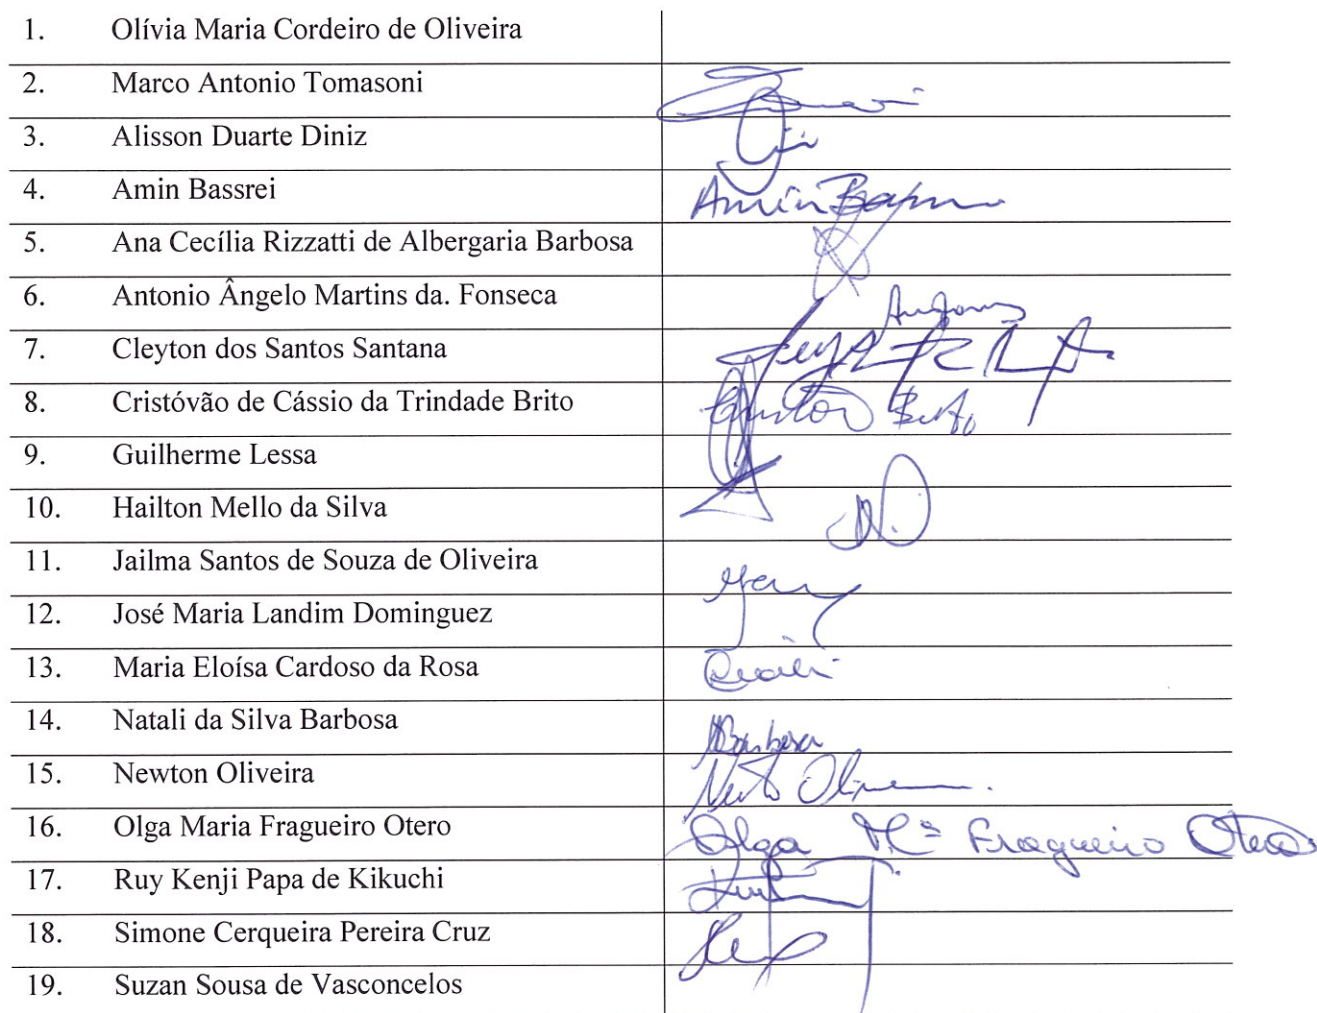 1. Olívia Maria Cordeiro de Oliveira
2. Marco Antonio Tomasoni
3. Alisson Duarte Diniz
4. Amin Bassrei Amin
5. Ana Cecília Rizzatti de Albergaria Barbosa
6. Antonio Ângelo Martins da. Fonseca
7. Cleyton dos Santos Santana
8. Cristóvão de Cássio da Trindade Brito Brito
9. Guilherme Lessa
10. Hailton Mello da Silva
11. Jailma Santos de Souza de Oliveira
12. José Maria Landim Dominguez
13. Maria Eloísa Cardoso da Rosa
14. Natali da Silva Barbosa NBarbosa
15. Newton Oliveira
16. Olga Maria Fragueiro Otero Olga Mª Fragueiro Otero
17. Ruy Kenji Papa de Kikuchi
18. Simone Cerqueira Pereira Cruz
19. Suzan Sousa de Vasconcelos